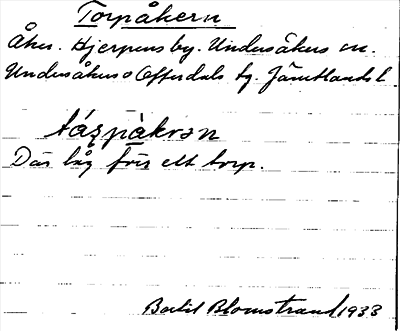 Torpåkern
Åker. Hjerpens by. Undersåkers sn.
Undersåkers o Offerdals tg. Jämtlands l.
Där låg förr ett torp.
Bertil Blomstrand 1933